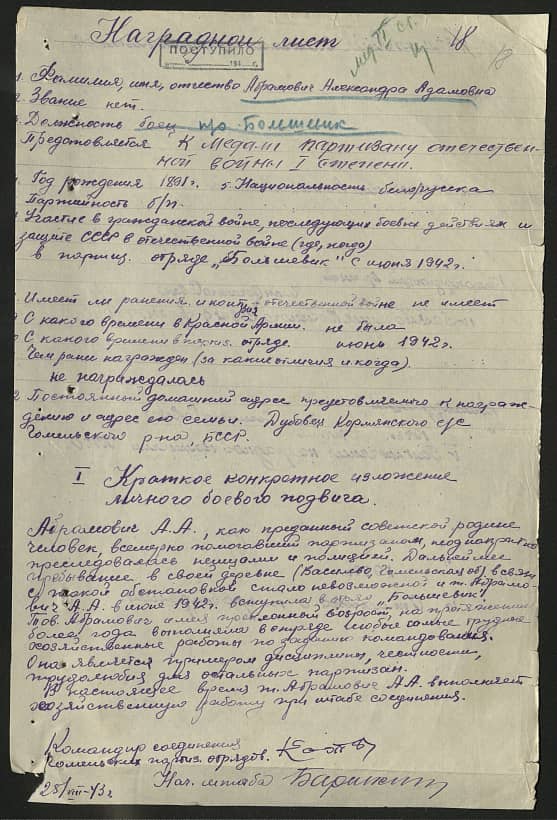 18
Наградной лист
ПОСТУПИЛО
1. Фамилия, имя, отчество Абрамович Александра Адамовна
2. Звание нет.
3. Должность боец п/о Большевик
Представляется К медали партизану отечествен-
ной войны I степени.
4. Год рождения 1891 г. 5. Национальность белорусска
Партийность б/п.
Участие в гражданской войне, последующих боевых действиях и
защите СССР в отечественной войне (где, когда)
в партиз. отряде „Большевик" с июня 1942 г.
Имеет ли ранения и контузия в отечественной войне не имеет
С какого времени в Красной Армии. не была
С какого времени в партиз. отряде. июнь 1942 г.
Чем ранее награжден (за какие отличия и когда).
не награждалась
Постоянный домашний адрес представляемого к награж-
дению и адрес его семьи. Дубовец Кормянского с/с
Гомельского р-на, БССР.
I Краткое конкретное изложение
личного боевого подвига.
Абрамович А.А., как преданный советской родине
человек, всемерно помогавший партизанам, неоднократно
преследовалась немцами и полицией. Дальнейшее
пребывание в своей деревне (Васильево, Гомельская об) в связи
с такой обстановкой стало невозможной и т. Абрамо-
вич А.А. в июне 1942 г. вступила в отряд „Большевик".
Тов. Абрамович имея преклонный возраст, на протяжении
более года выполняла в отряде любые самые трудные
хозяйственные работы по заданию командования.
Она является примером дисциплины, честности,
трудолюбия для остальных партизан.
В настоящее время т. Абрамович А.А. выполняет
хозяйственную работу при штабе соединения.
Командир соединения
Гомельских партиз. отрядов.
Нач. штаба
25/VIII-43 г.